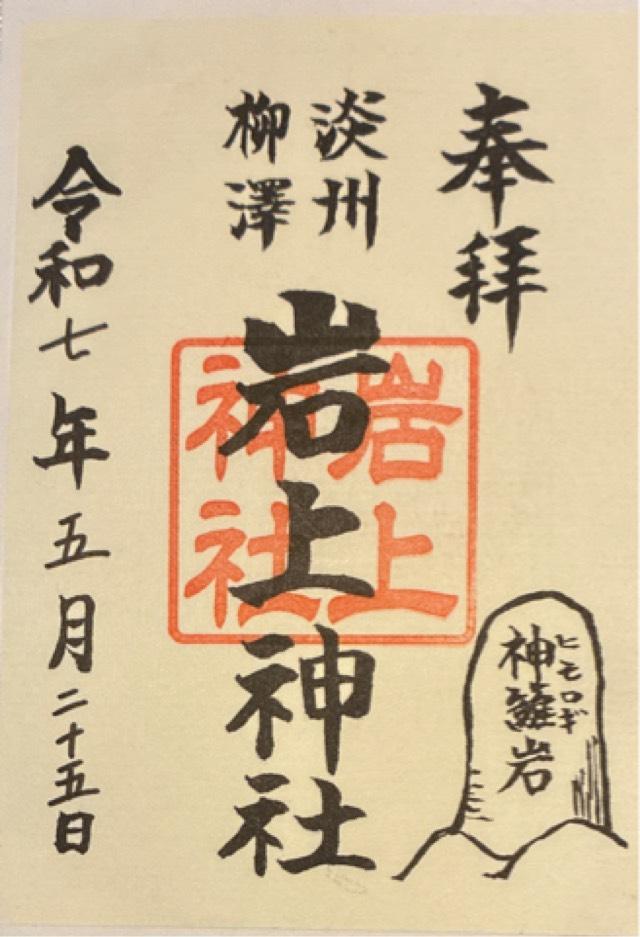 奉拝
淡州
柳澤
岩上神社
岩上
神社
神籬岩
ヒモロギ
令和七年五月二十五日